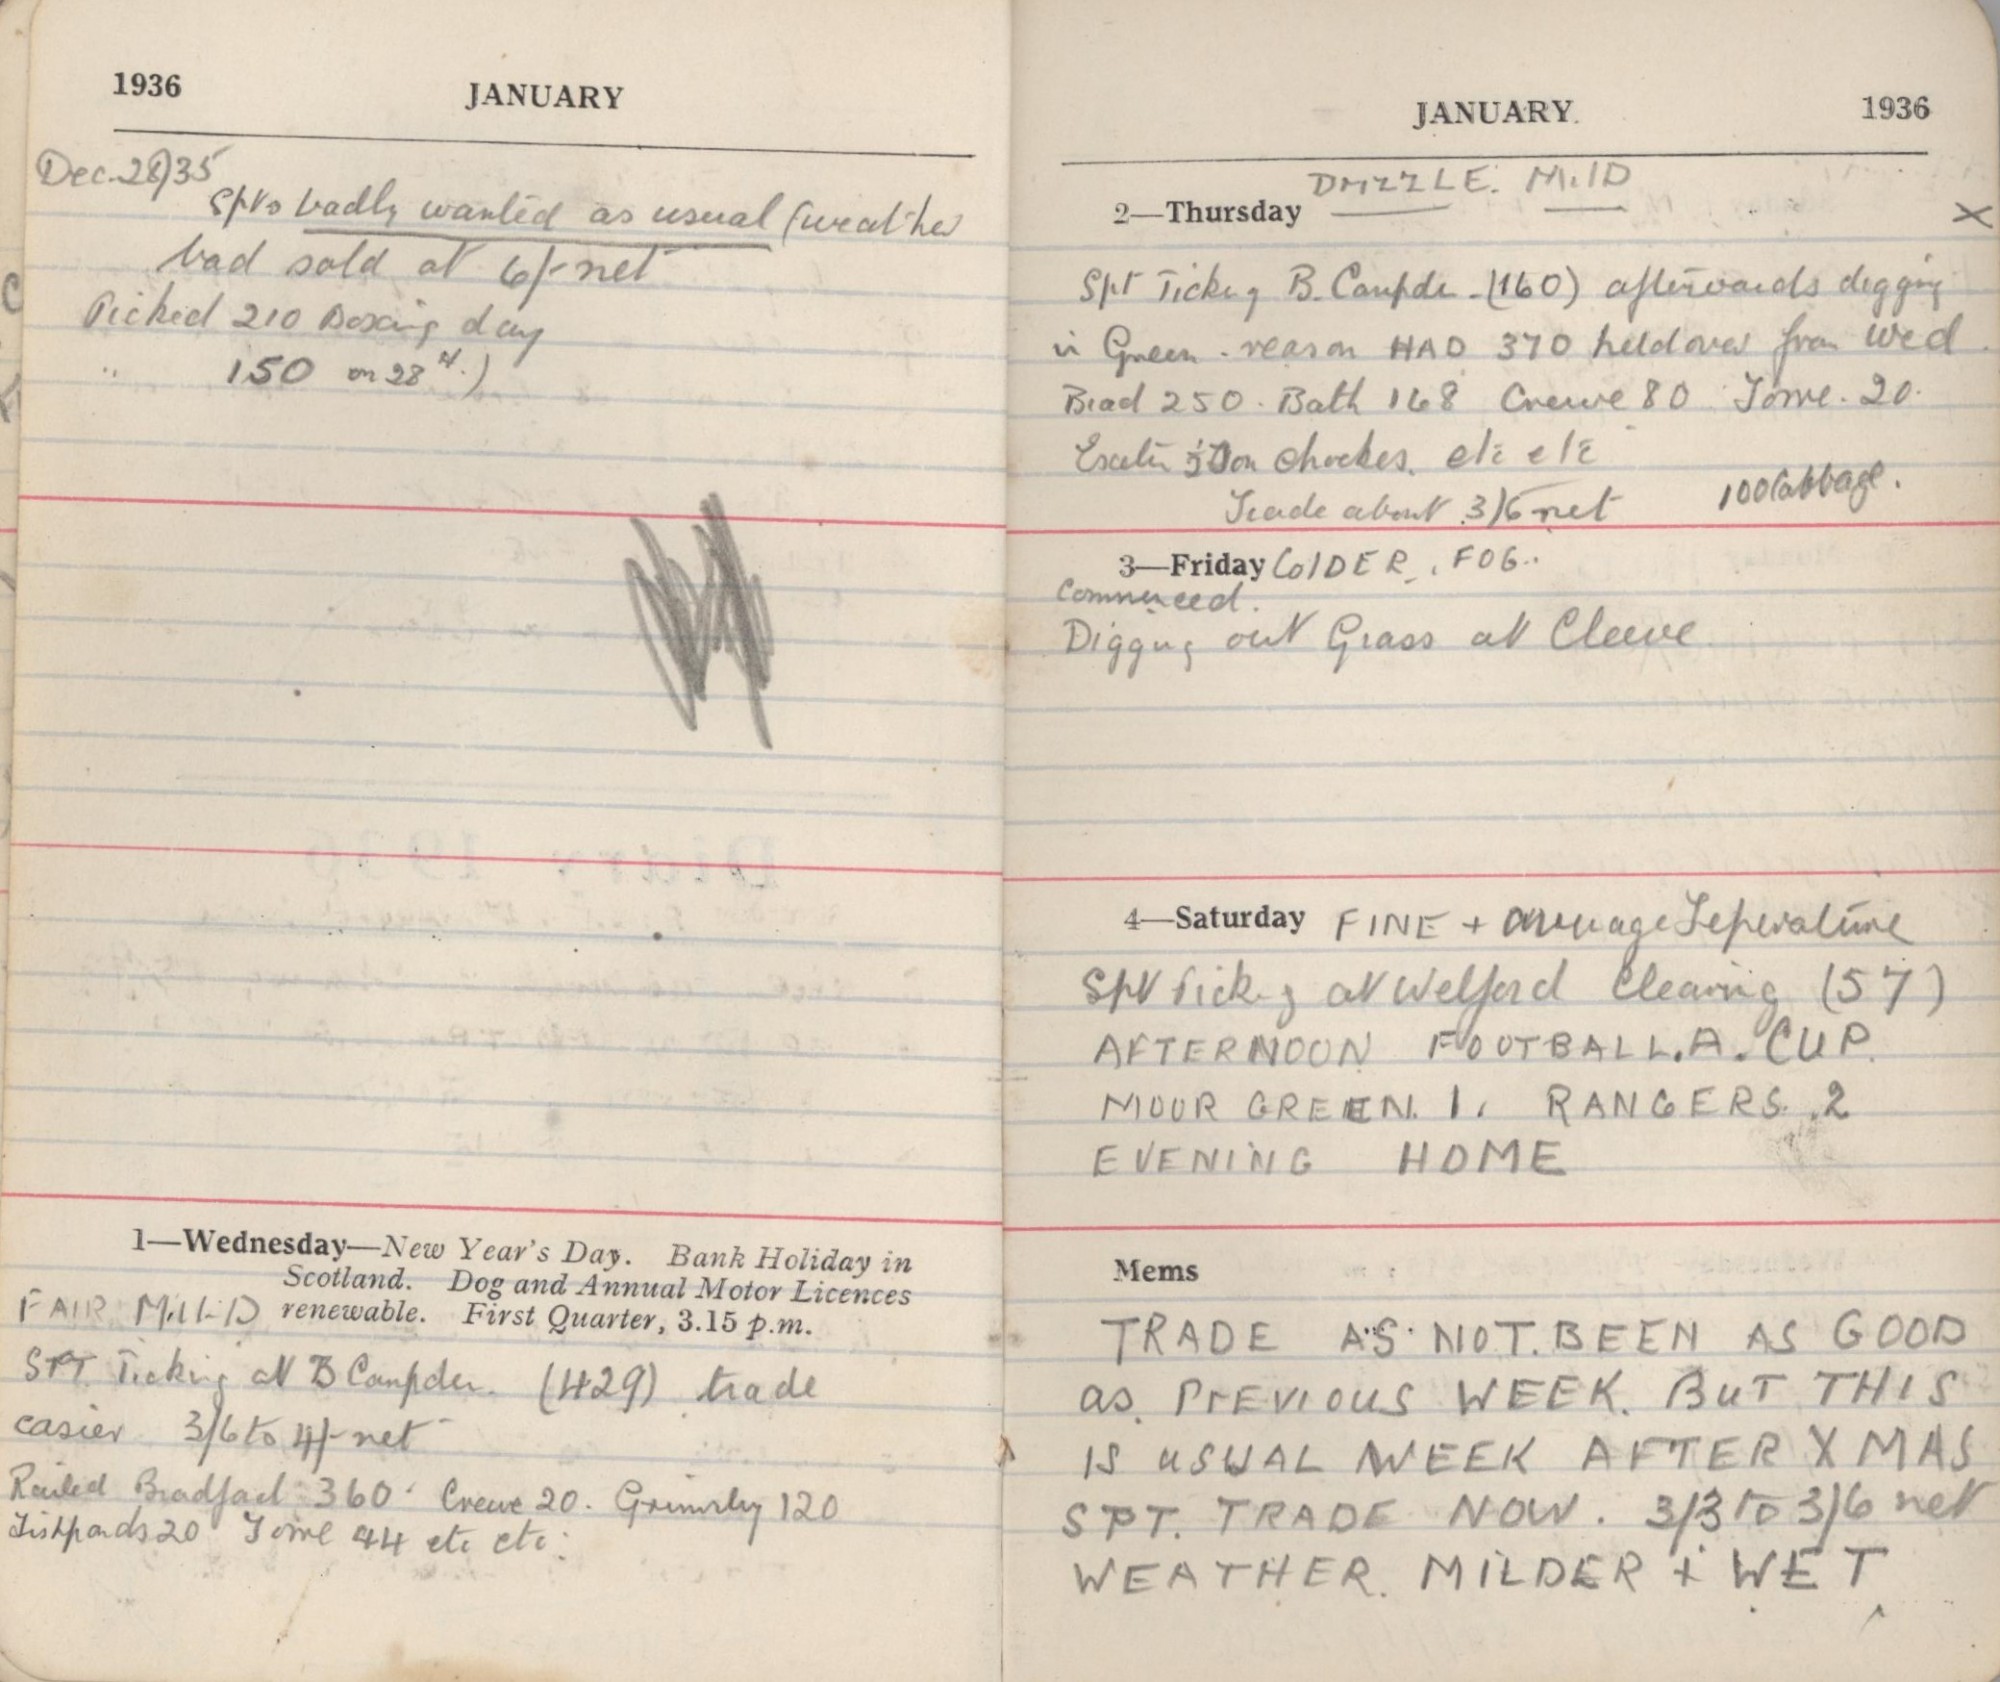 1936 JANUARY
Dec. 28)35
Spts badly wanted as usual (weather
bad sold at 6/- net
Picked 210 Boxing day
" 150 on 28th.)
1—Wednesday—New Year's Day. Bank Holiday in
Scotland. Dog and Annual Motor Licences
renewable. First Quarter, 3.15 p.m.
FAIR MILD
SPT. Picking at B Campden. (429) trade
easier 3/6 to 4/- net
Railed Bradford 360. Crewe 20. Grimsby 120
20 44 etc etc.
JANUARY. 1936
DRIZZLE. MILD
2—Thursday X
Spt Picking B. Campden. (160) afterwards digging
in Green. reason HAD 370 held over from Wed.
Brad 250. Bath 168 Crewe 80 20.
Exeter ½ Ton chockes. etc etc
Trade about 3/6 net 100 Cabbage.
3—Friday COLDER. FOG.
Commenced.
Digging out Grass at Cleeve
4—Saturday FINE + avuage Teperature
Spt Picking at Welford Clearing (57)
AFTERNOON FOOTBALL. A. CUP.
MOOR GREEN. 1. RANGERS. 2
EVENING HOME
Mems
TRADE AS NOT. BEEN AS GOOD
as. PREVIOUS WEEK. BUT THIS
IS USUAL WEEK AFTER XMAS
SPT. TRADE NOW. 3/3 to 3/6 net
WEATHER. MILDER + WET